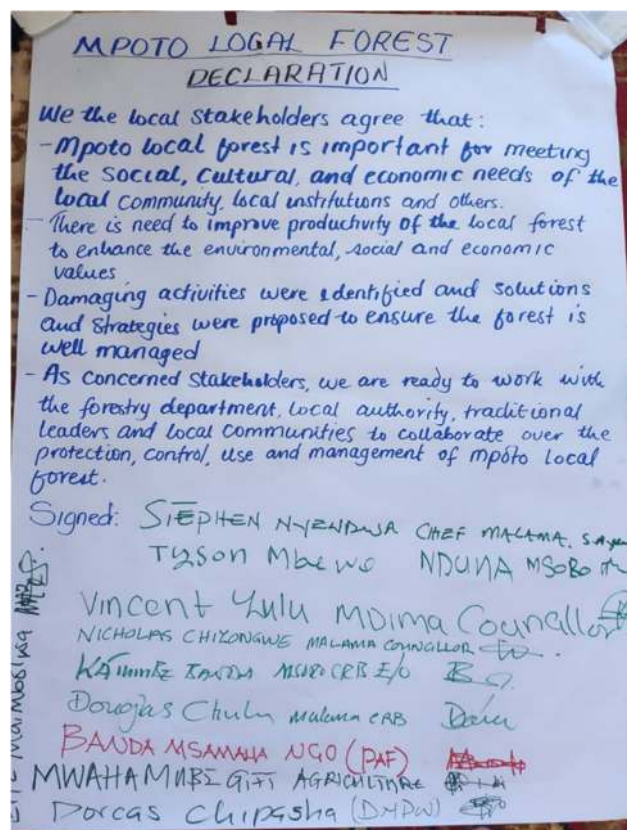 MPOTO LOCAL FOREST
DECLARATION
We the local stakeholders agree that:
- Mpoto local forest is important for meeting
the social, cultural, and economic needs of the
local community, local institutions and others.
- There is need to improve productivity of the local forest
to enhance the environmental, social and economic
values
- Damaging activities were identified and solutions
and strategies were proposed to ensure the forest is
well managed
- As concerned stakeholders, we are ready to work with
the forestry department, local authority, traditional
leaders and local communities to collaborate over the
protection, control, use and management of mpoto local
forest.
Signed: STEPHEN NYENDWA CHEF MALAMA.
Tyson Mbewe NDUNA MSORO
Vincent Zulu MDIMA Counallor
NICHOLAS CHIZONGWE MALAMA COUNCILLOR
BANDA MSORO CRB E/O
Douglas Chulu Malama CRB
BANDA MSAMAHA NGO (PAF)
MWAHAMUBI GIFT AGRICULTURE
Dorcas Chipasha (DMPW)